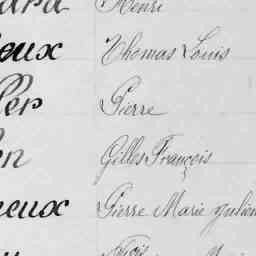 ard Henri
eux Thomas Louis
ler Pierre
en Gilles François
neux Pierre Marie Julien